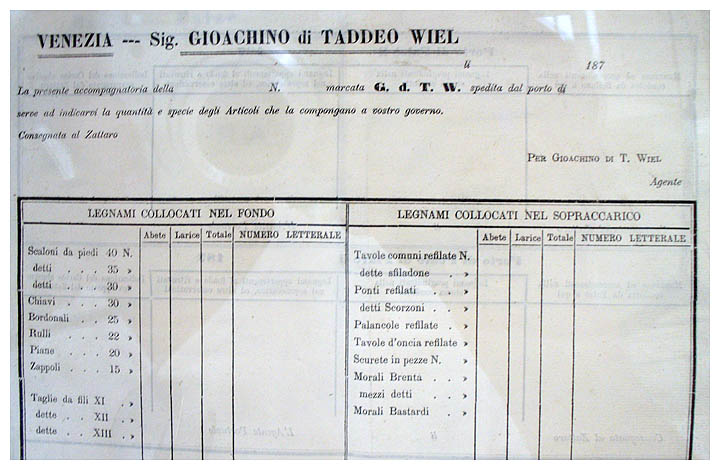 VENEZIA --- Sig. GIOACHINO di TADDEO WIEL
li 187
La presente accompagnatoria della N. marcata G. d. T. W. spedita dal porto di
serve ad indicarvi la quantità e specie degli Articoli che la compongano a vostro governo.
Consegnata al Zattaro
PER GIOACHINO DI T. WIEL
Agente
LEGNAMI COLLOCATI NEL FONDO
Abete Larice Totale NUMERO LETTERALE
Scaloni da piedi 40 N.
detti . . . 35 »
detti . . . 30 »
Chiavi . . . 30 »
Bordonali . . 25 »
Rulli . . . 22 »
Piane . . . 20 »
Zappoli . . . 15 »
Taglie da fili XI . »
dette . . XII . »
dette . . XIII . »
LEGNAMI COLLOCATI NEL SOPRACCARICO
Abete Larice Totale NUMERO LETTERALE
Tavole comuni refilate N.
dette sfiladone . »
Ponti refilati . »
detti Scorzoni . . »
Palancole refilate . »
Tavole d'oncia refilate »
Scurete in pezze N. »
Morali Brenta . . »
mezzi detti . . »
Morali Bastardi . . »